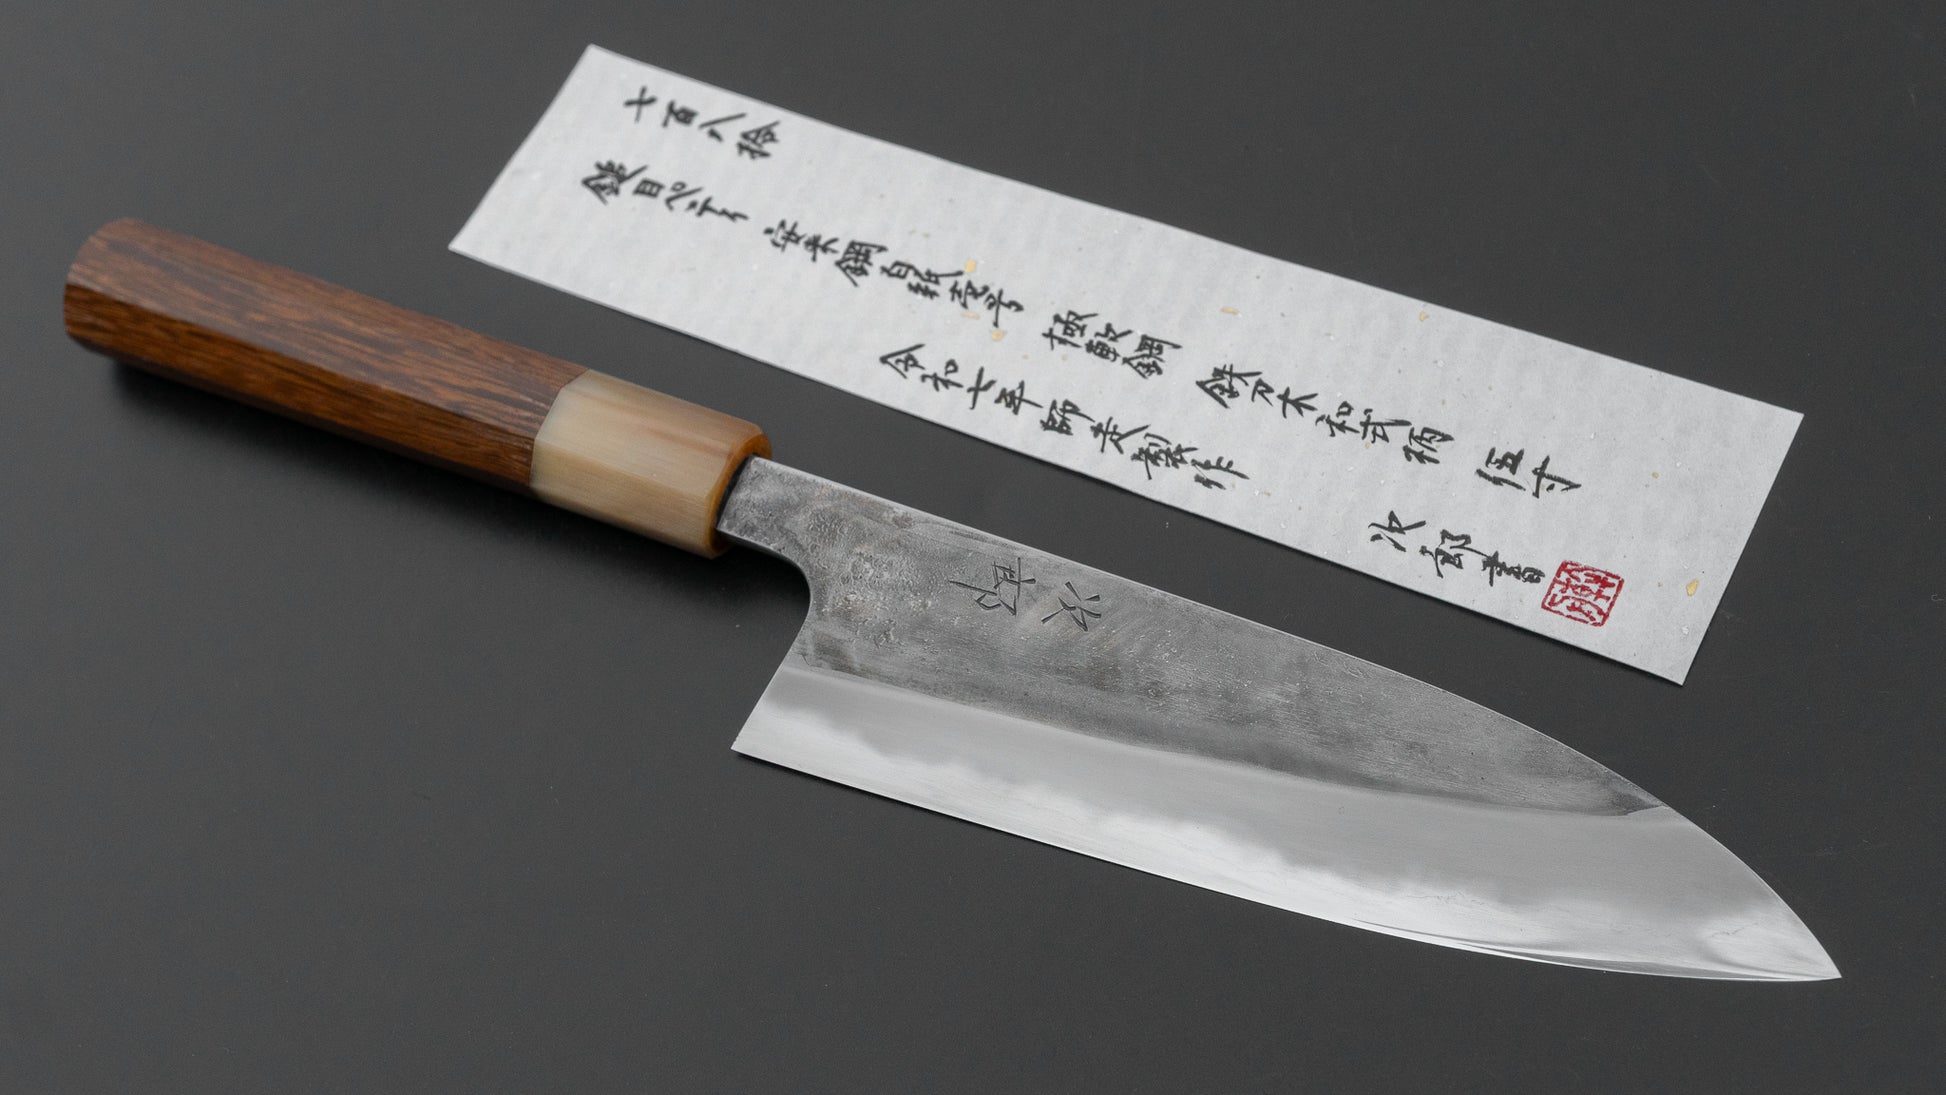 七百八拾
鎚目ペティ 安来鋼白紙壱号 極軟鋼 鉄刀木和式柄 伍寸
令和七年師走製作
次郎書
次郎